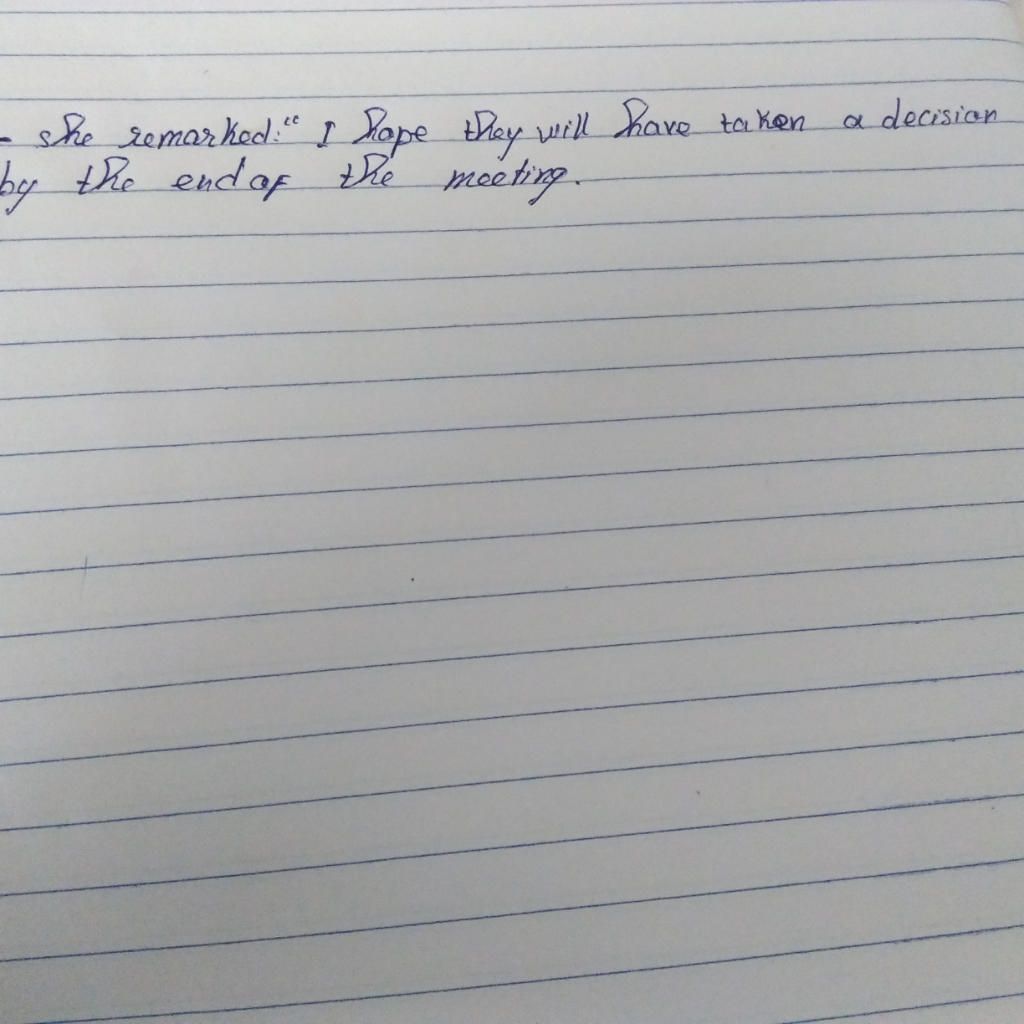 - she remarked:“ I hope they will have taken a decision
by the end of the meeting.